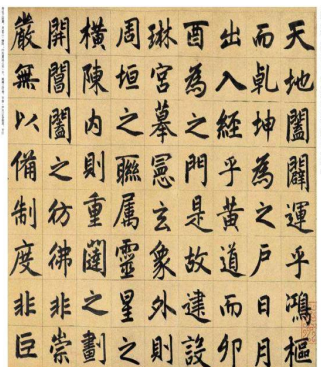 天地闔闢運乎鴻樞
而乹坤為之戶日月
出入經乎黄道而卯
酉為之門是故建設
琳宮摹憲玄象外則
周垣之聮屬靈星之
橫陳内則重闥之劃
開閶闔之彷彿非崇
嚴無以備制度非巨